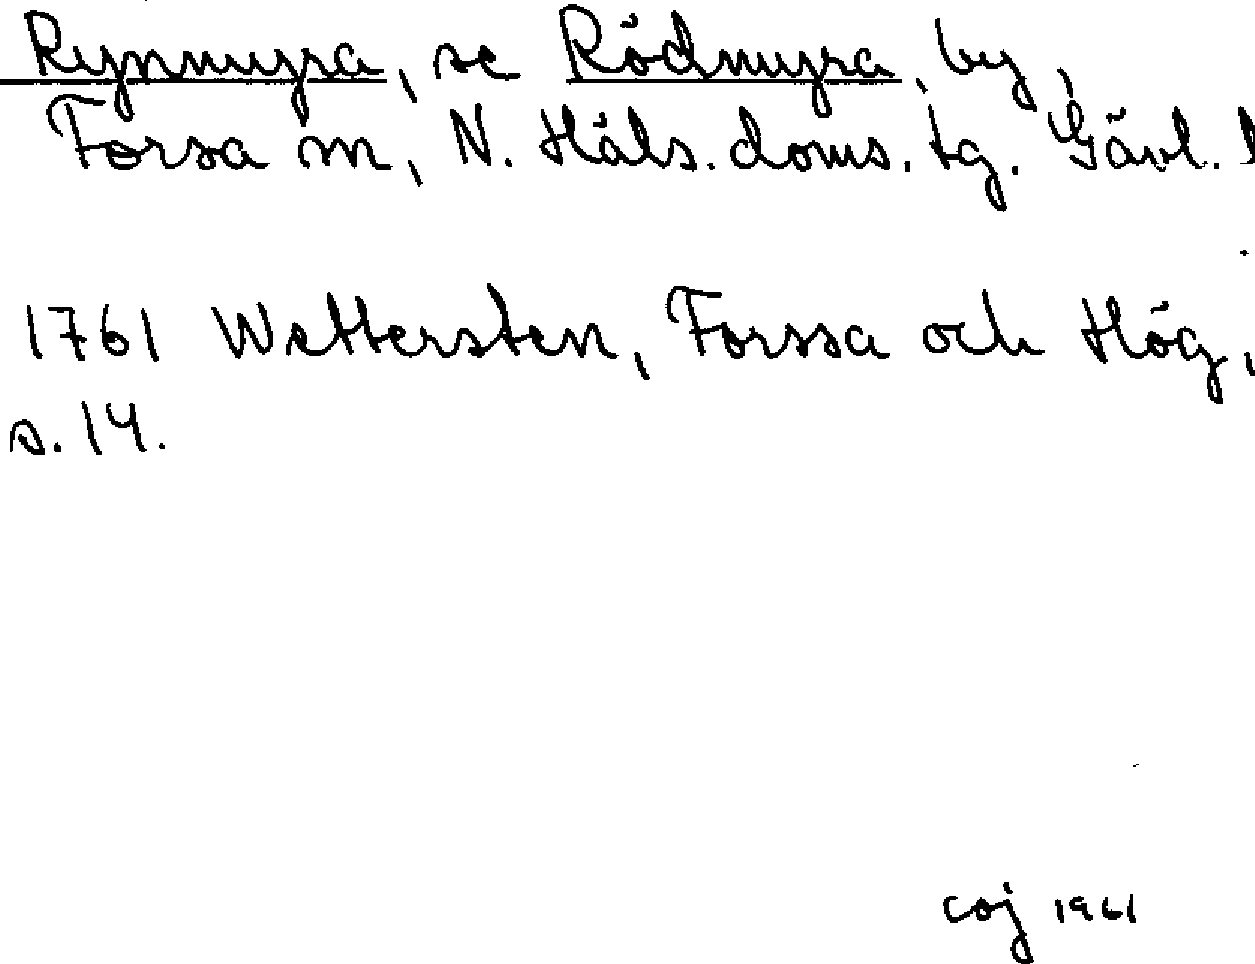 Rynmyra, se Rödmyra, by,
Forsa sn, N. Häls. doms. tg. Gävl. l
1761 Wettersten, Forssa och Hög,
s. 14.
coj 1961